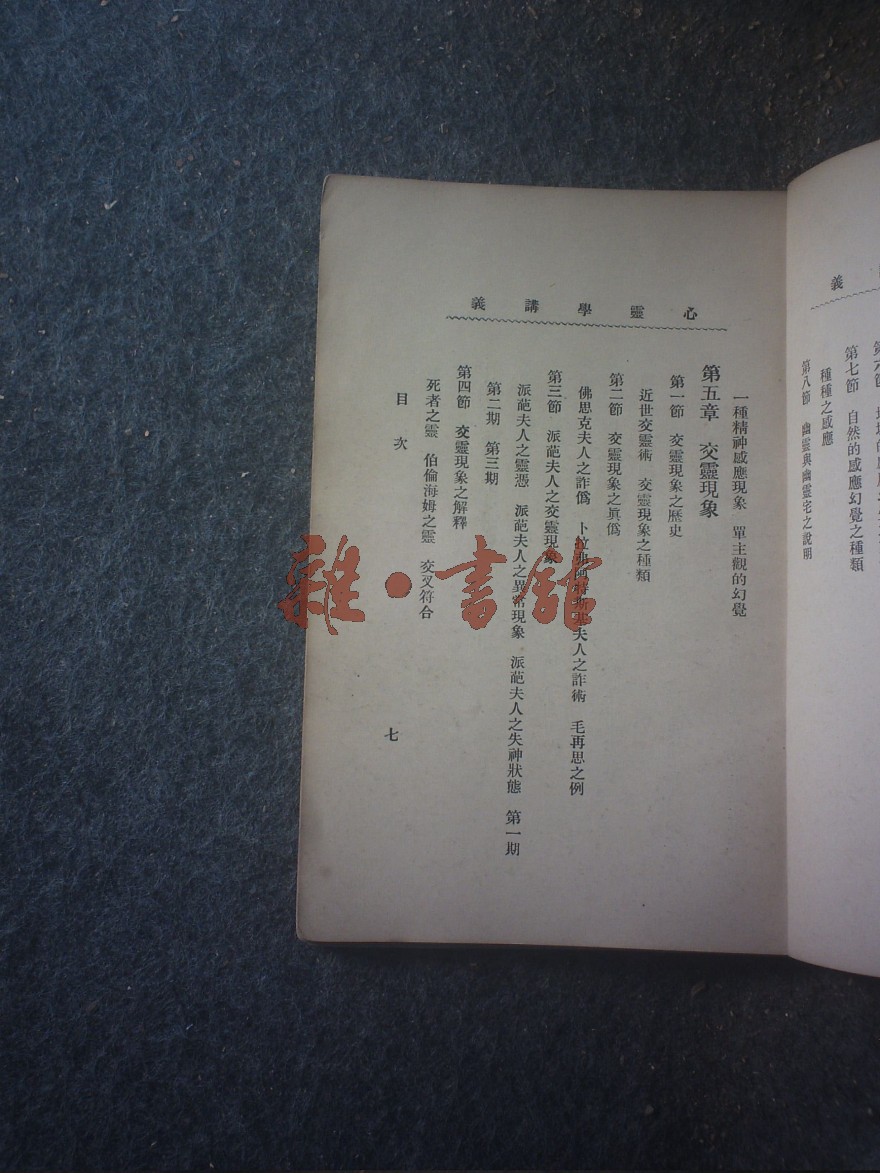 義
第七節　自然的感應幻覺之種類
種種之感應
第八節　幽靈與幽靈宅之說明
心靈學講義
一種精神感應現象　單主觀的幻覺
第五章　交靈現象
第一節　交靈現象之歷史
近世交靈術　交靈現象之種類
第二節　交靈現象之眞僞
佛思克夫人之詐僞　卜　　阿特斯　夫人之詐術　毛再思之例
第三節　派葩夫人之交靈現象
派葩夫人之靈憑　派葩夫人之異常現象　派葩夫人之失神狀態　第一期
第二期　第三期
第四節　交靈現象之解釋
死者之靈　伯倫海姆之靈　交叉符合
目次
七
雜·書館